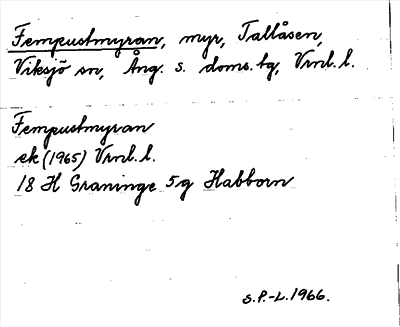 Fempustmyran, myr, Tallåsen,
Viksjö sn, Ång. s. doms. tg, Vrnl. l.
Fempustmyran
ek (1965) Vrnl. l.
18 H Graninge 5g Habborn
S.P.-L. 1966.